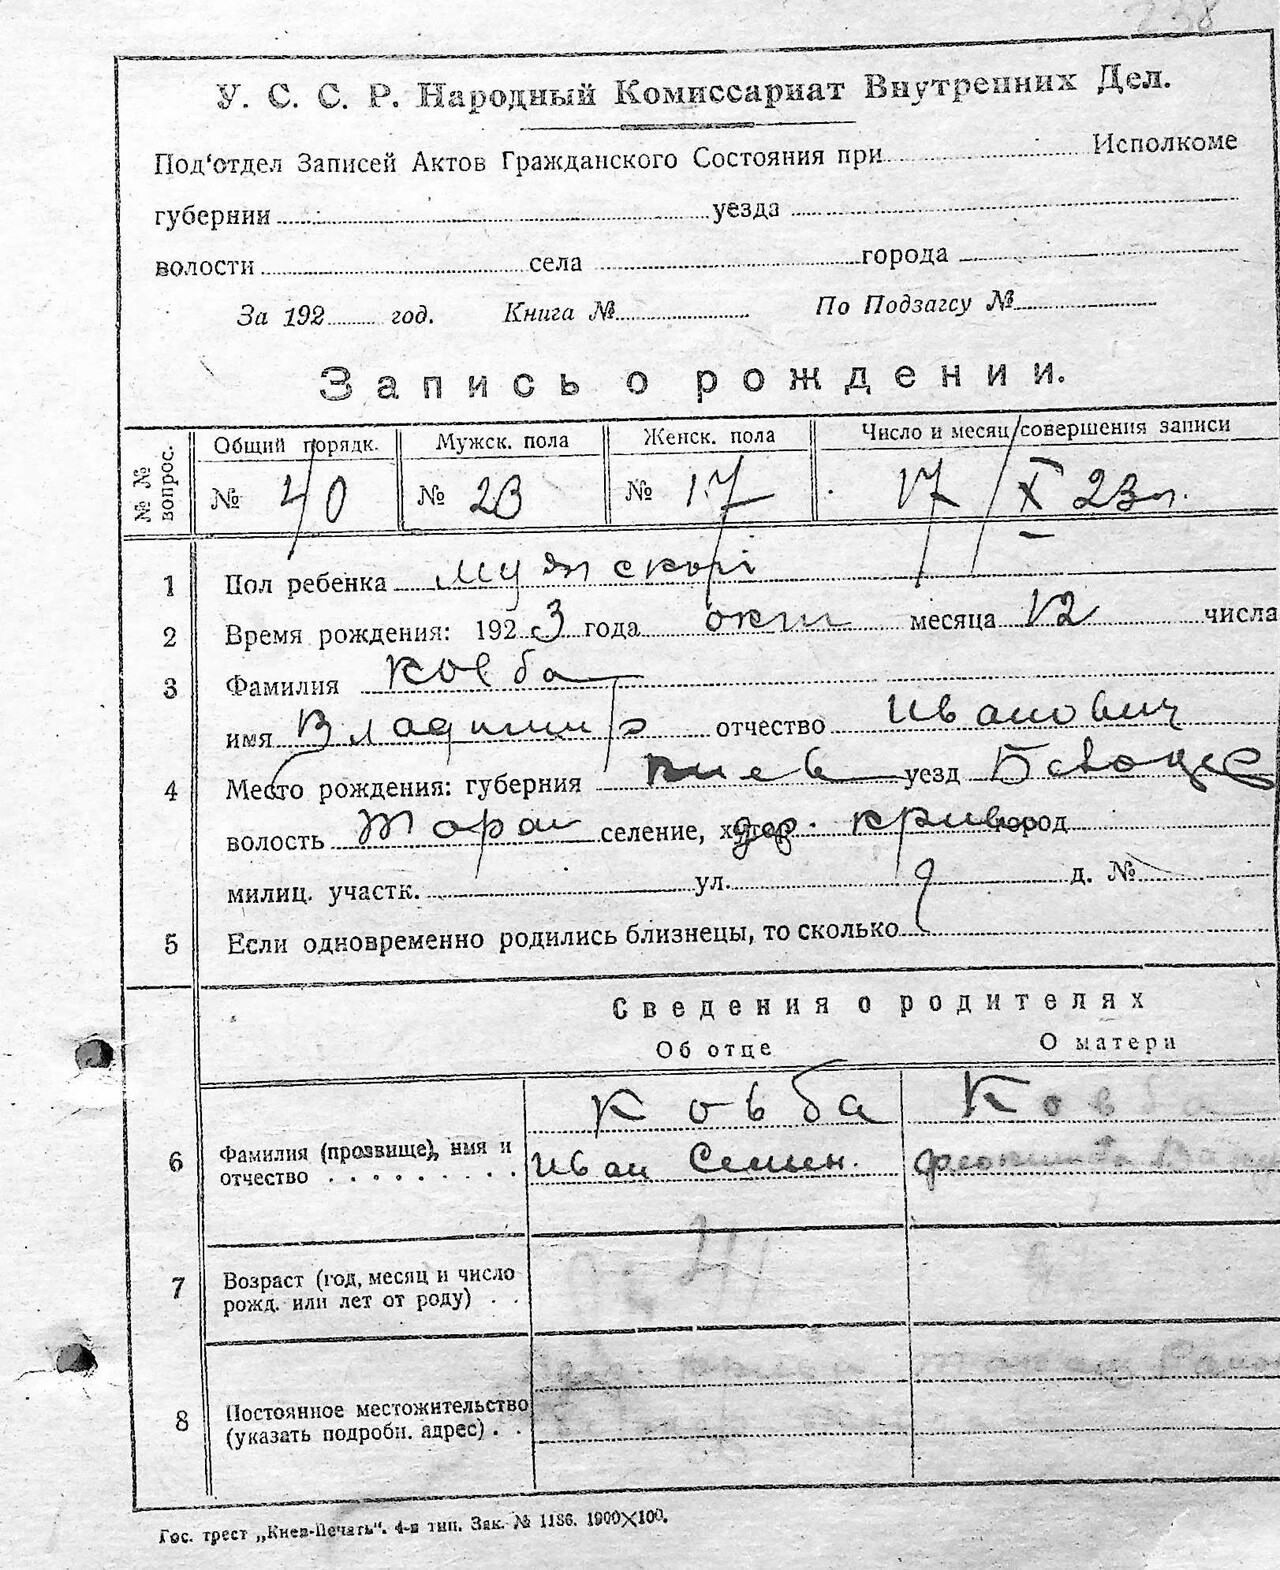 238
У. С. С. Р. Народный Комиссариат Внутренних Дел.
Под'отдел Записей Актов Гражданского Состояния при Исполкоме
губернии уезда
волости села города
За 192 год. Книга № По Подзагсу №
Запись о рождении.
№№ вопрос. Общий порядк. Мужск. пола Женск. пола Число и месяц совершения записи
№ 40 № 23 № 17 17/X 23 г.
1 Пол ребенка мужской
2 Время рождения: 1923 года окт месяца 12 числа
3 Фамилия Ковба
имя Владимир отчество Иванович
4 Место рождения: губерния Киев уезд
волость селение, хутор дер. город
милиц. участк. ул. д. №
5 Если одновременно родились близнецы, то сколько
Сведения о родителях
Об отце О матери
Ковба Ковба
6 Фамилия (прозвище), имя и отчество Иван Семен.
7 Возраст (год, месяц и число рожд. или лет от роду)
8 Постоянное местожительство (указать подробн. адрес)
Гос. трест „Киев-Печать". 4-я тип. Зак. № 1186. 1900X100.